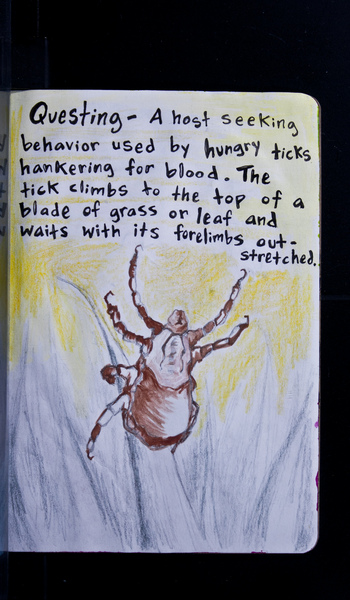 Questing - A host seeking
behavior used by hungry ticks
hankering for blood. The
tick climbs to the top of a
blade of grass or leaf and
waits with its forelimbs out-
stretched.